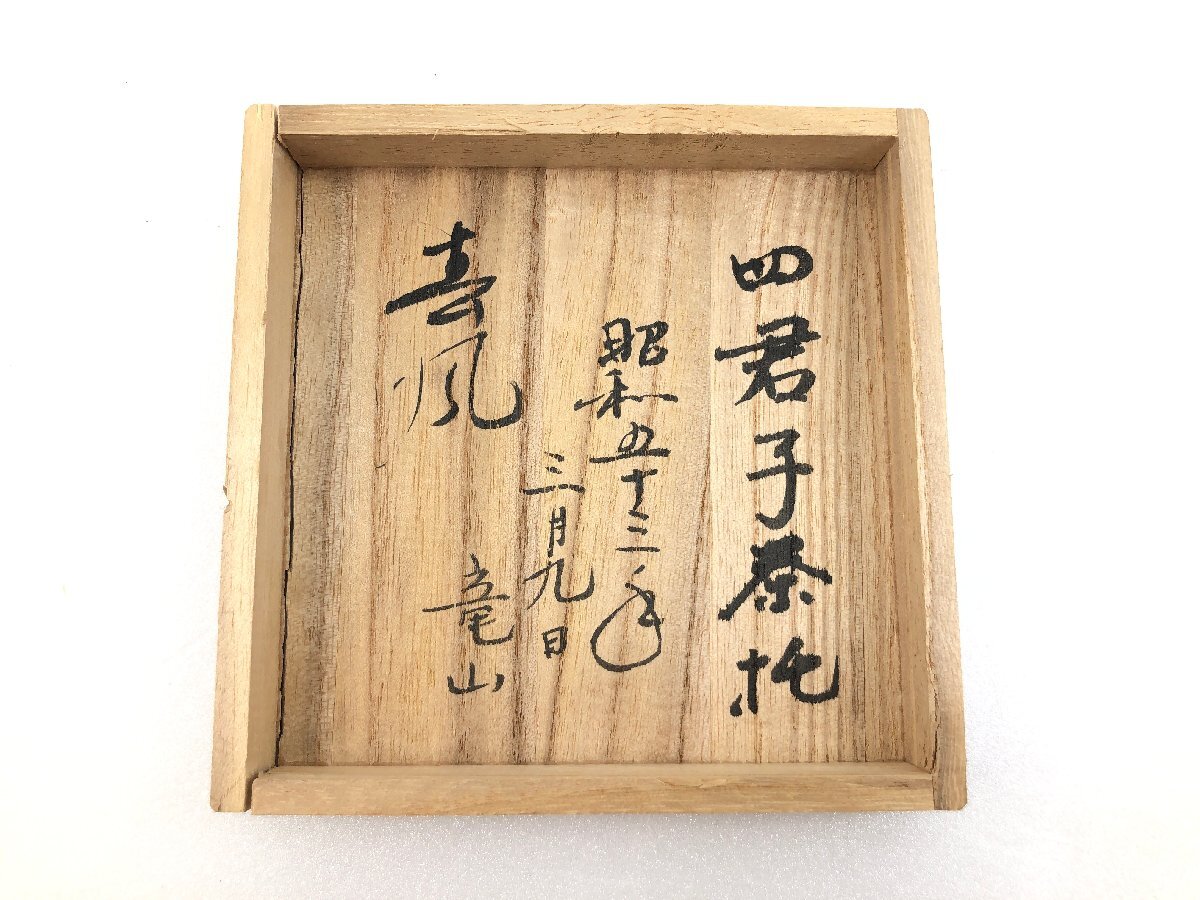 四君子茶托
昭和五十三年
三月九日
春風
竜山